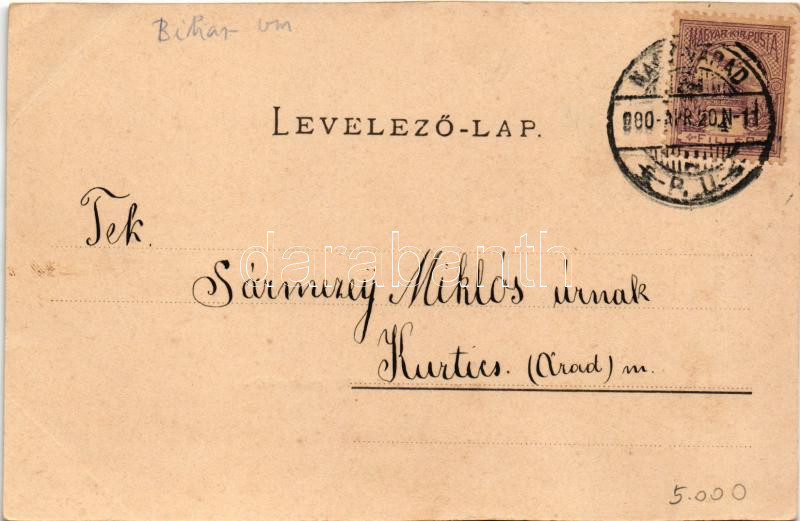 Bihar vm
MAGYAR KIR. POSTA
NAGYVÁRAD
900-APR.20.N-11
P. U.
LEVELEZŐ-LAP.
Tek.
Sármezey Miklós úrnak
Kurtics. (Arad) m.
darabanth
5.000